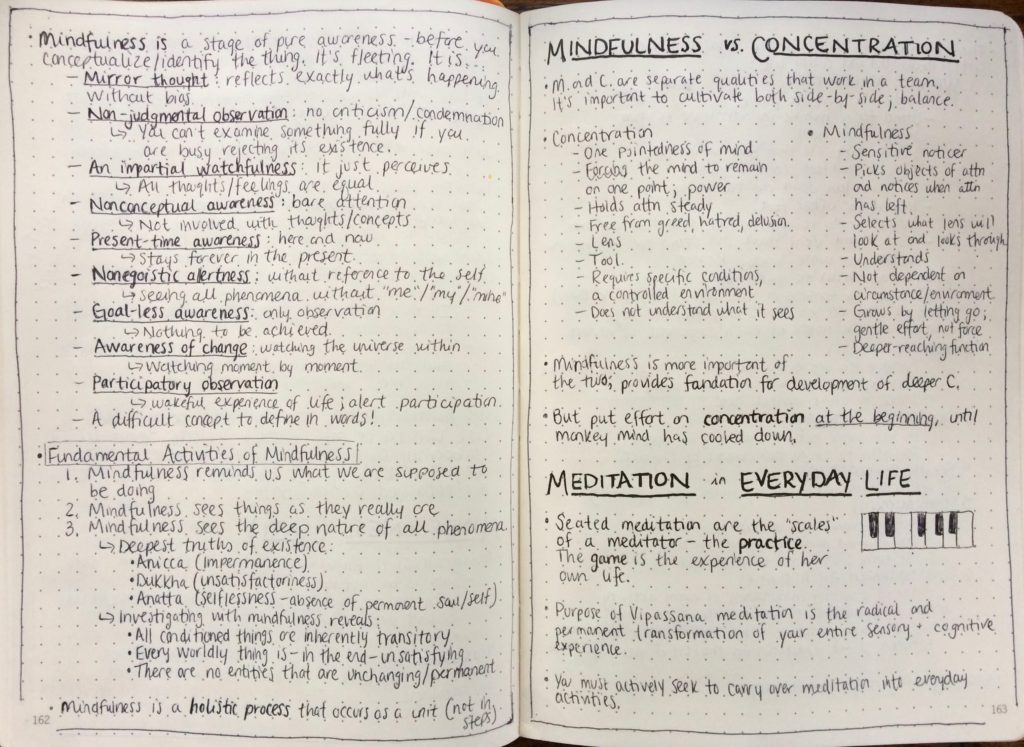 • Mindfulness is a stage of pure awareness - before you
conceptualize/identify the thing. It's fleeting. It is:
- Mirror thought: reflects exactly what's happening
without bias.
- Non-judgmental observation: no criticism/condemnation
↳ You can't examine something fully if you
are busy rejecting its existence.
- An impartial watchfulness: it just perceives.
↳ All thoughts/feelings are equal
- Nonconceptual awareness: bare attention
↳ Not involved with thoughts/concepts
- Present-time awareness: here and now
↳ Stays forever in the present.
- Nonegoistic alertness: without reference to the self
↳ seeing all phenomena without "me"/"my"/"mine"
- Goal-less awareness: only observation
↳ Nothing to be achieved.
- Awareness of change: watching the universe within
↳ Watching moment by moment.
- Participatory observation
↳ wakeful experience of life; alert participation.
- A difficult concept to define in words!
• Fundamental Activities of Mindfulness
1. Mindfulness reminds us what we are supposed to
be doing
2. Mindfulness sees things as they really are
3. Mindfulness sees the deep nature of all phenomena.
↳ Deepest truths of existence:
• Anicca (impermanence)
• Dukkha (unsatisfactoriness)
• Anatta (selflessness - absence of permanent soul/self).
↳ Investigating with mindfulness reveals:
• All conditioned things are inherently transitory
• Every worldly thing is - in the end - unsatisfying.
• There are no entities that are unchanging/permanent
• Mindfulness is a holistic process that occurs as a unit (not in
steps)
162
MINDFULNESS vs. CONCENTRATION
• M. and C. are separate qualities that work in a team.
It's important to cultivate both side-by-side; balance.
• Concentration
- One pointedness of mind
- Focuses the mind to remain
on one point; power
- Holds attn steady
- Free from greed, hatred, delusion.
- Lens
- Tool
- Requires specific conditions,
a controlled environment
- Does not understand what it sees
• Mindfulness
- Sensitive noticer
- Picks objects of attn
and notices when attn
has left.
- Selects what lens will
look at and looks through
- Understands
- Not dependent on
circumstance/environment
- Grows by letting go;
gentle effort, not force
- Deeper-reaching function
• Mindfulness is more important of
the two; provides foundation for development of deeper C.
• But put effort on concentration at the beginning, until
monkey mind has cooled down.
MEDITATION in EVERYDAY LIFE
• Seated meditation are the "scales"
of a meditator - the practice.
The game is the experience of her
own life.
• Purpose of Vipassana meditation is the radical and
permanent transformation of your entire sensory + cognitive
experience.
• You must actively seek to carry over meditation into everyday
activities.
163